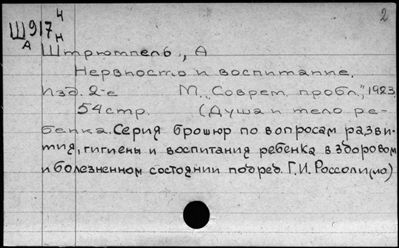 2
Ш917 ч
А н
Штрюмпель, А
Нервность и воспитание.
Изд. 2-е М. "Соврем. пробл.", 1923
54 стр. (Душа и тело ре-
бенка. Серия брошюр по вопросам разви-
тия, гигиены и воспитания ребенка в здоровом
и болезненном состоянии под ред. Г.И. Россоли(мо)